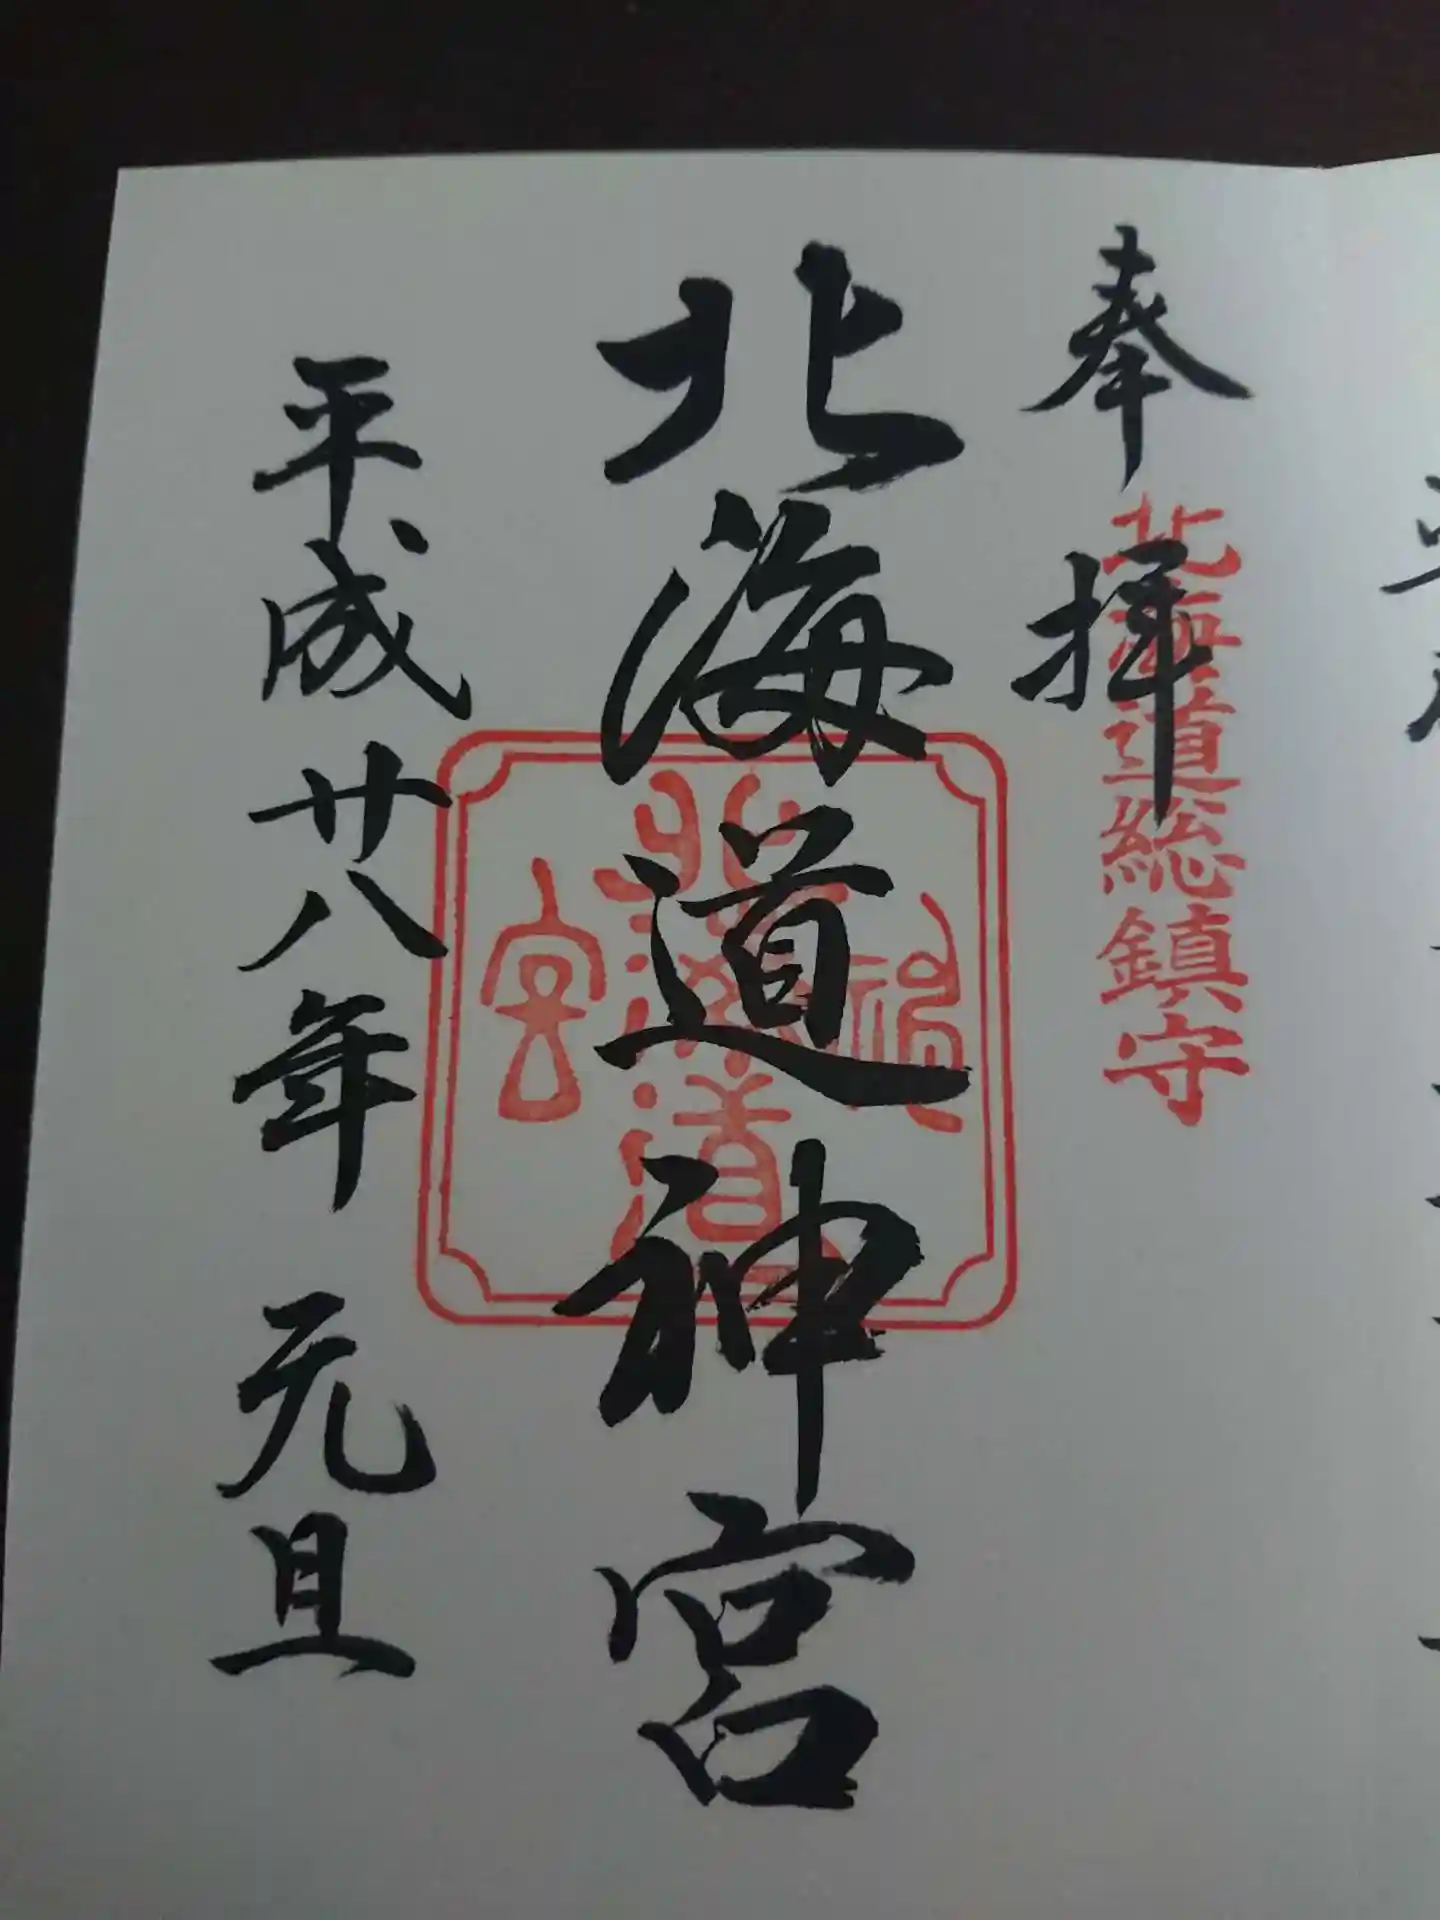 奉拝
北海道総鎮守
北海道神宮
北海道
神
宮
平成廿八年 元旦